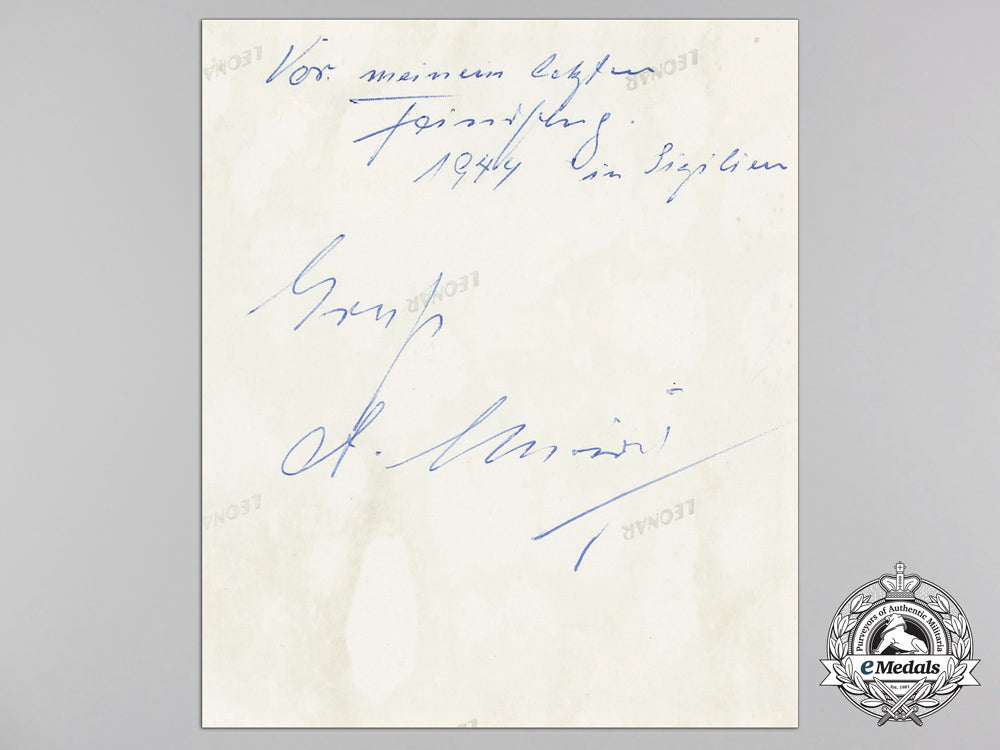 Vor meinem letzten
Feindflug.
1944 in Sizilien
Gruß
A.
LEONAR
LEONAR
LEONAR
LEONAR
LEONAR
Purveyors of Authentic Militaria
eMedals
Est. 1985